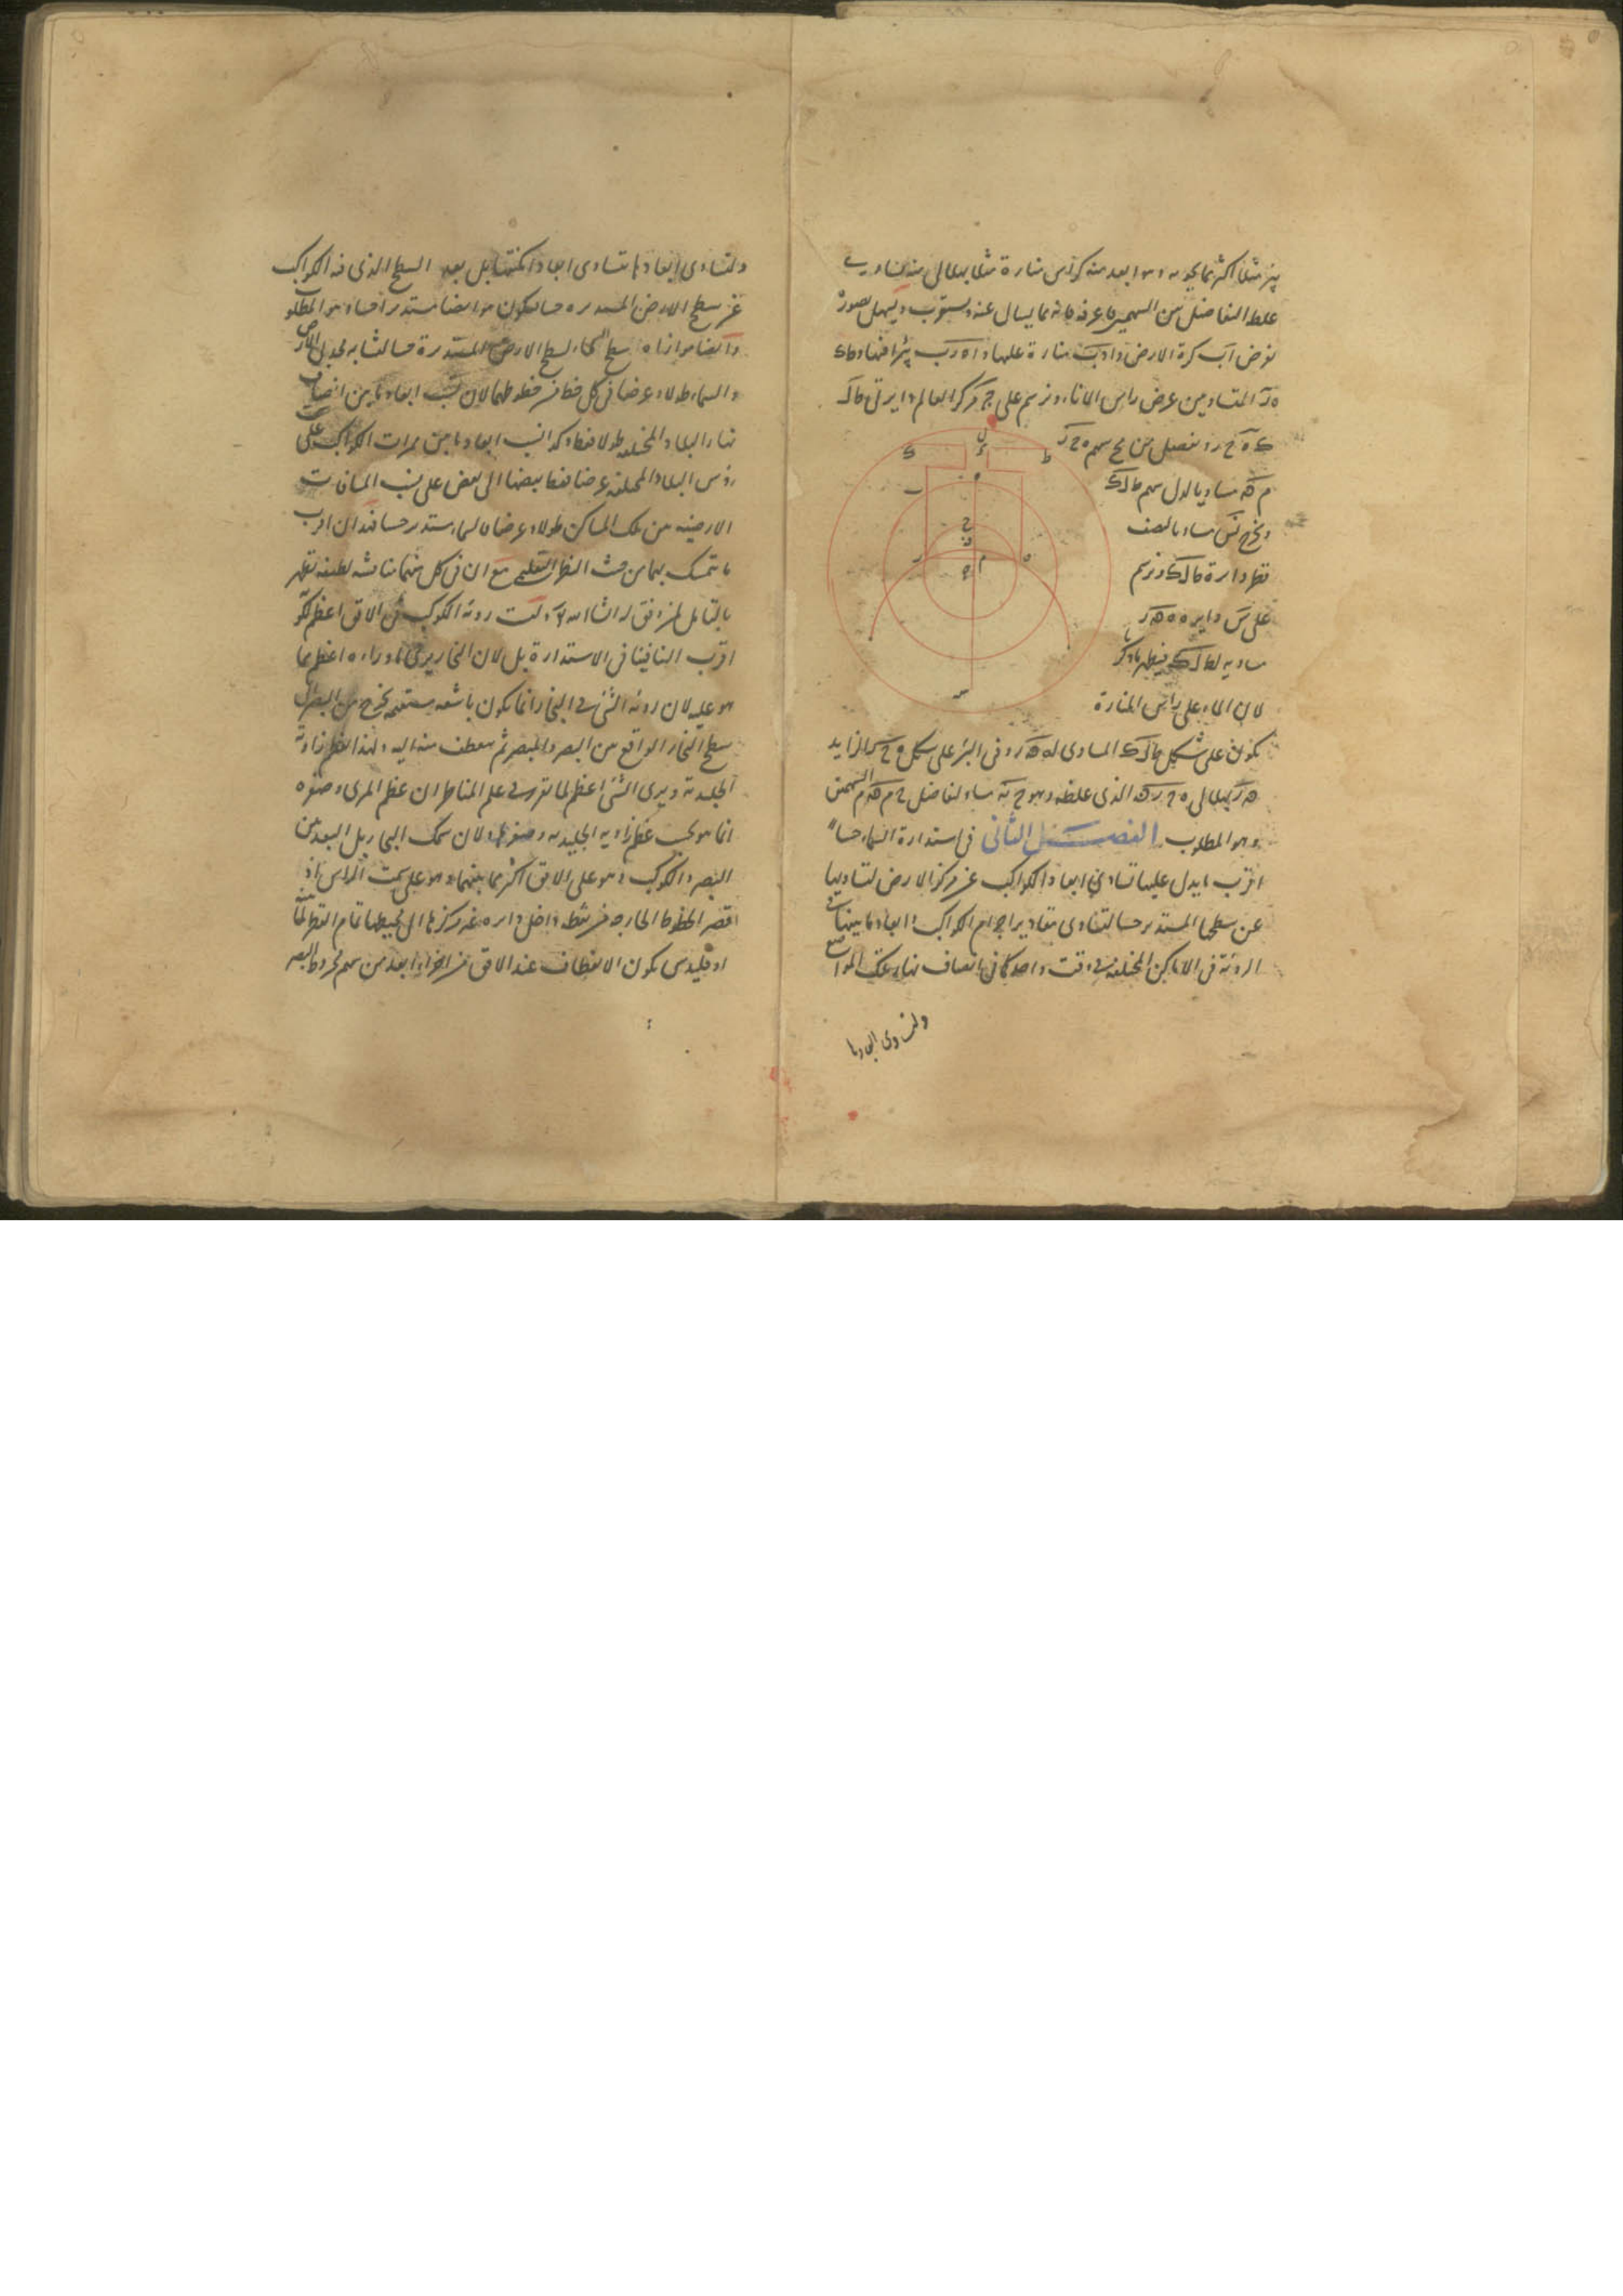 بئر مثلا اكثر مما يحويه وهو ابعد منه كرأس منارة مثلا بهلالي متساوي
غلظ التفاضل من السهمين ما عرفه فانه مما يسال عنه ويستغرب ويسهل تصوره
نفرض اب كرة الارض و اد ب منارة عليها و اه رب بئرا فيها و ط ك
ه ر المتساويين عرض راس الاناء ونرسم على ج مركز العالم دايرتي ط ل
ك ه ح ر ونفصل من سهم ه ح ر
م ق مساويا لـ ل سهم ط ل ك
ونخرج مساويا لنصف
قطر دايرة ط ل ك ونرسم
على س دايرة ه ق ر
مساوية لـ ط ل ك فيظهر ما ذكر
لان الماء على راس المنارة
يكون على شكل ط ل ك المساوي لـ ه ق ر وفي البئر على شكل ه ح ر الزايد
بهلالي ه ح ر ق الذي غلظه وهو ح ق مساو لتفاضل ح م ق م السهمين
وهو المطلوب الفصل الثاني في استدارة السماء حسا
اقرب ما يدل عليها تساوي ابعاد الكواكب عن مركز الارض لتساويها
عن سطحها المستدير حسا لتساوي مقادير اجرام الكواكب وابعاد ما بينها في
الروية في الاماكن المختلفة في وقت واحد كما في انصاف نهار تلك المواضع
ولتساوي ابعادها
ل
ط
ك
ب
ه
ح
ر
م
ج
س
ولتساوي ابعادها تتساوى ابعاد امكنتها بل بعد السطح الذي فيه الكواكب
عن سطح الارض المستديرة حسا فيكون هو ايضا مستديرا حسا وهو المطلوب
وايضا موازاة سطح السماء لسطح الارض المستديرة حسا لتشابه محدبي الارض
والسماء طولا وعرضا في كل قطر من قطريهما لان نسب ابعاد ما بين انصاف
نهار البلاد المختلفة طولا فقط وكذا نسب ابعاد ما بين ممرات الكواكب على
رؤس البلاد المختلفة عرضا فقط بعضها الى بعض على نسب المسافات
الارضية من تلك المساكن طولا وعرضا فالسماء مستدير حسا فهذان اقرب
ما يتمسك بهما من حيث النظر التعليمي مع ان في كل منهما مناقشة لطيفة تظهر
بالتامل لمن وفق له ان شاء الله وليست روية الكوكب في الافق اعظم لكونه
اقرب الينا فينافي الاستدارة بل لان البخار يري ما وراءه اعظم مما
هو عليه لان روية الشيء في البخار انما يكون باشعة مستقيمة تخرج من البصر الى
سطح البخار الواقع بين البصر والمبصر ثم ينعطف منه اليه ولهذا تعظم زاوية
الجليدية ويرى الشيء اعظم لما تقرر في علم المناظر ان عظم المرئي وصغره
انما هو بحسب عظم زاوية الجليدية وصغرها ولان سمك البخار بل البعد بين
البصر والكوكب وهو على الافق اكثر مما بينهما وهو على سمت الراس اذ
اقصر الخطوط الخارجة من نقطة داخل دايرة غير مركزها الى محيطها تمام القطر لما بينه
اوقليدس يكون الانعطاف عند الافق من اجزاء ابعد من سهم مخروط البصر